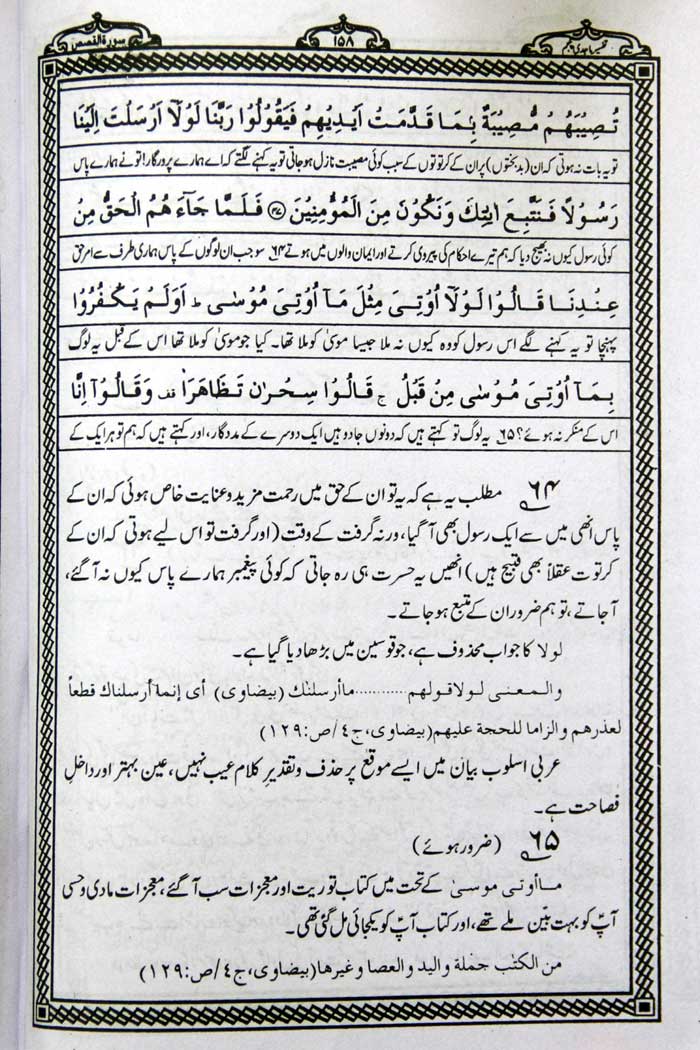 تفسیر ماجدی
۱۵۸
سورۃ القصص
تُصِيْبَهُمْ مُّصِيْبَةٌۢ بِمَا قَدَّمَتْ اَيْدِيْهِمْ فَيَقُوْلُوْا رَبَّنَا لَوْلَاۤ اَرْسَلْتَ اِلَيْنَا
تو یہ بات نہ ہوتی کہ ان (بدبختوں) پر ان کے کرتوتوں کے سبب کوئی مصیبت نازل ہو جاتی تو یہ کہنے لگتے کہ اے ہمارے پروردگار! تو نے ہمارے پاس
رَسُوْلًا فَنَتَّبِعَ اٰيٰتِكَ وَنَكُوْنَ مِنَ الْمُؤْمِنِيْنَ ﴿۴۷﴾ فَلَمَّا جَآءَهُمُ الْحَقُّ مِنْ
کوئی رسول کیوں نہ بھیج دیا کہ ہم تیرے احکام کی پیروی کرتے اور ایمان والوں میں ہوتے ۶۴ سو جب ان لوگوں کے پاس ہماری طرف سے امر حق
عِنْدِنَا قَالُوْا لَوْلَاۤ اُوْتِيَ مِثْلَ مَاۤ اُوْتِيَ مُوْسٰى ؕ اَوَلَمْ يَكْفُرُوْا
پہنچا تو یہ کہنے لگے اس رسول کو وہ کیوں نہ ملا جیسا موسیٰ کو ملا تھا۔ کیا جو موسیٰ کو ملا تھا اس کے قبل یہ لوگ
بِمَاۤ اُوْتِيَ مُوْسٰى مِنْ قَبْلُ ۚ قَالُوْا سِحْرٰنِ تَظَاهَرَا ۟ وَقَالُوْۤا اِنَّا
اس کے منکر نہ ہوئے؟ ۶۵ یہ لوگ تو کہتے ہیں کہ دونوں جادو ہیں ایک دوسرے کے مددگار، اور کہتے ہیں کہ ہم تو ہر ایک کے
۶۴ مطلب یہ ہے کہ یہ تو ان کے حق میں رحمت مزید و عنایت خاص ہوئی کہ ان کے
پاس انھی میں سے ایک رسول بھی آ گیا، ورنہ گرفت کے وقت (اور گرفت تو اس لیے ہوتی کہ ان کے
کرتوت عقلاً بھی قبیح ہیں) انھیں یہ حسرت ہی رہ جاتی کہ کوئی پیغمبر ہمارے پاس کیوں نہ آ گئے،
آ جاتے، تو ہم ضرور ان کے متبع ہو جاتے۔
لولا کا جواب محذوف ہے، جو قوسین میں بڑھا دیا گیا ہے۔
والمعنی لولا قولهم ............ ما أرسلناك (بیضاوی) أی إنما أرسلناك قطعاً
لعذرهم والزاما للحجة علیهم (بیضاوی، ج٤/ص:١٢٩)
عربی اسلوب بیان میں ایسے موقع پر حذف و تقدیر کلام عیب نہیں، عین بہتر اور داخلِ
فصاحت ہے۔
۶۵ (ضرور ہوئے)
ما أوتی موسیٰ کے تحت میں کتاب توریت اور معجزات سب آ گئے، معجزات مادی و حسی
آپؑ کو بہت بین ملے تھے، اور کتاب آپؑ کو یکجائی مل گئی تھی۔
من الکتٰب جملة والید والعصا وغیرها (بیضاوی، ج٤/ص:١٢٩)